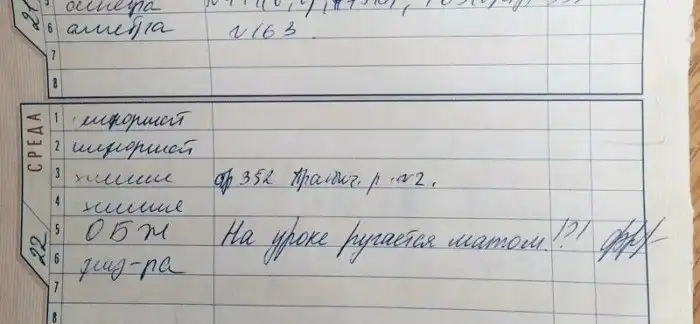 21
5 алгебра
6 алгебра №163
7
8
СРЕДА
22
1 информат
2 информат
3 химия стр 352 Практич. р. №2.
4 химия
5 ОБЖ На уроке ругается матом!?!
6 физ-ра
7
8